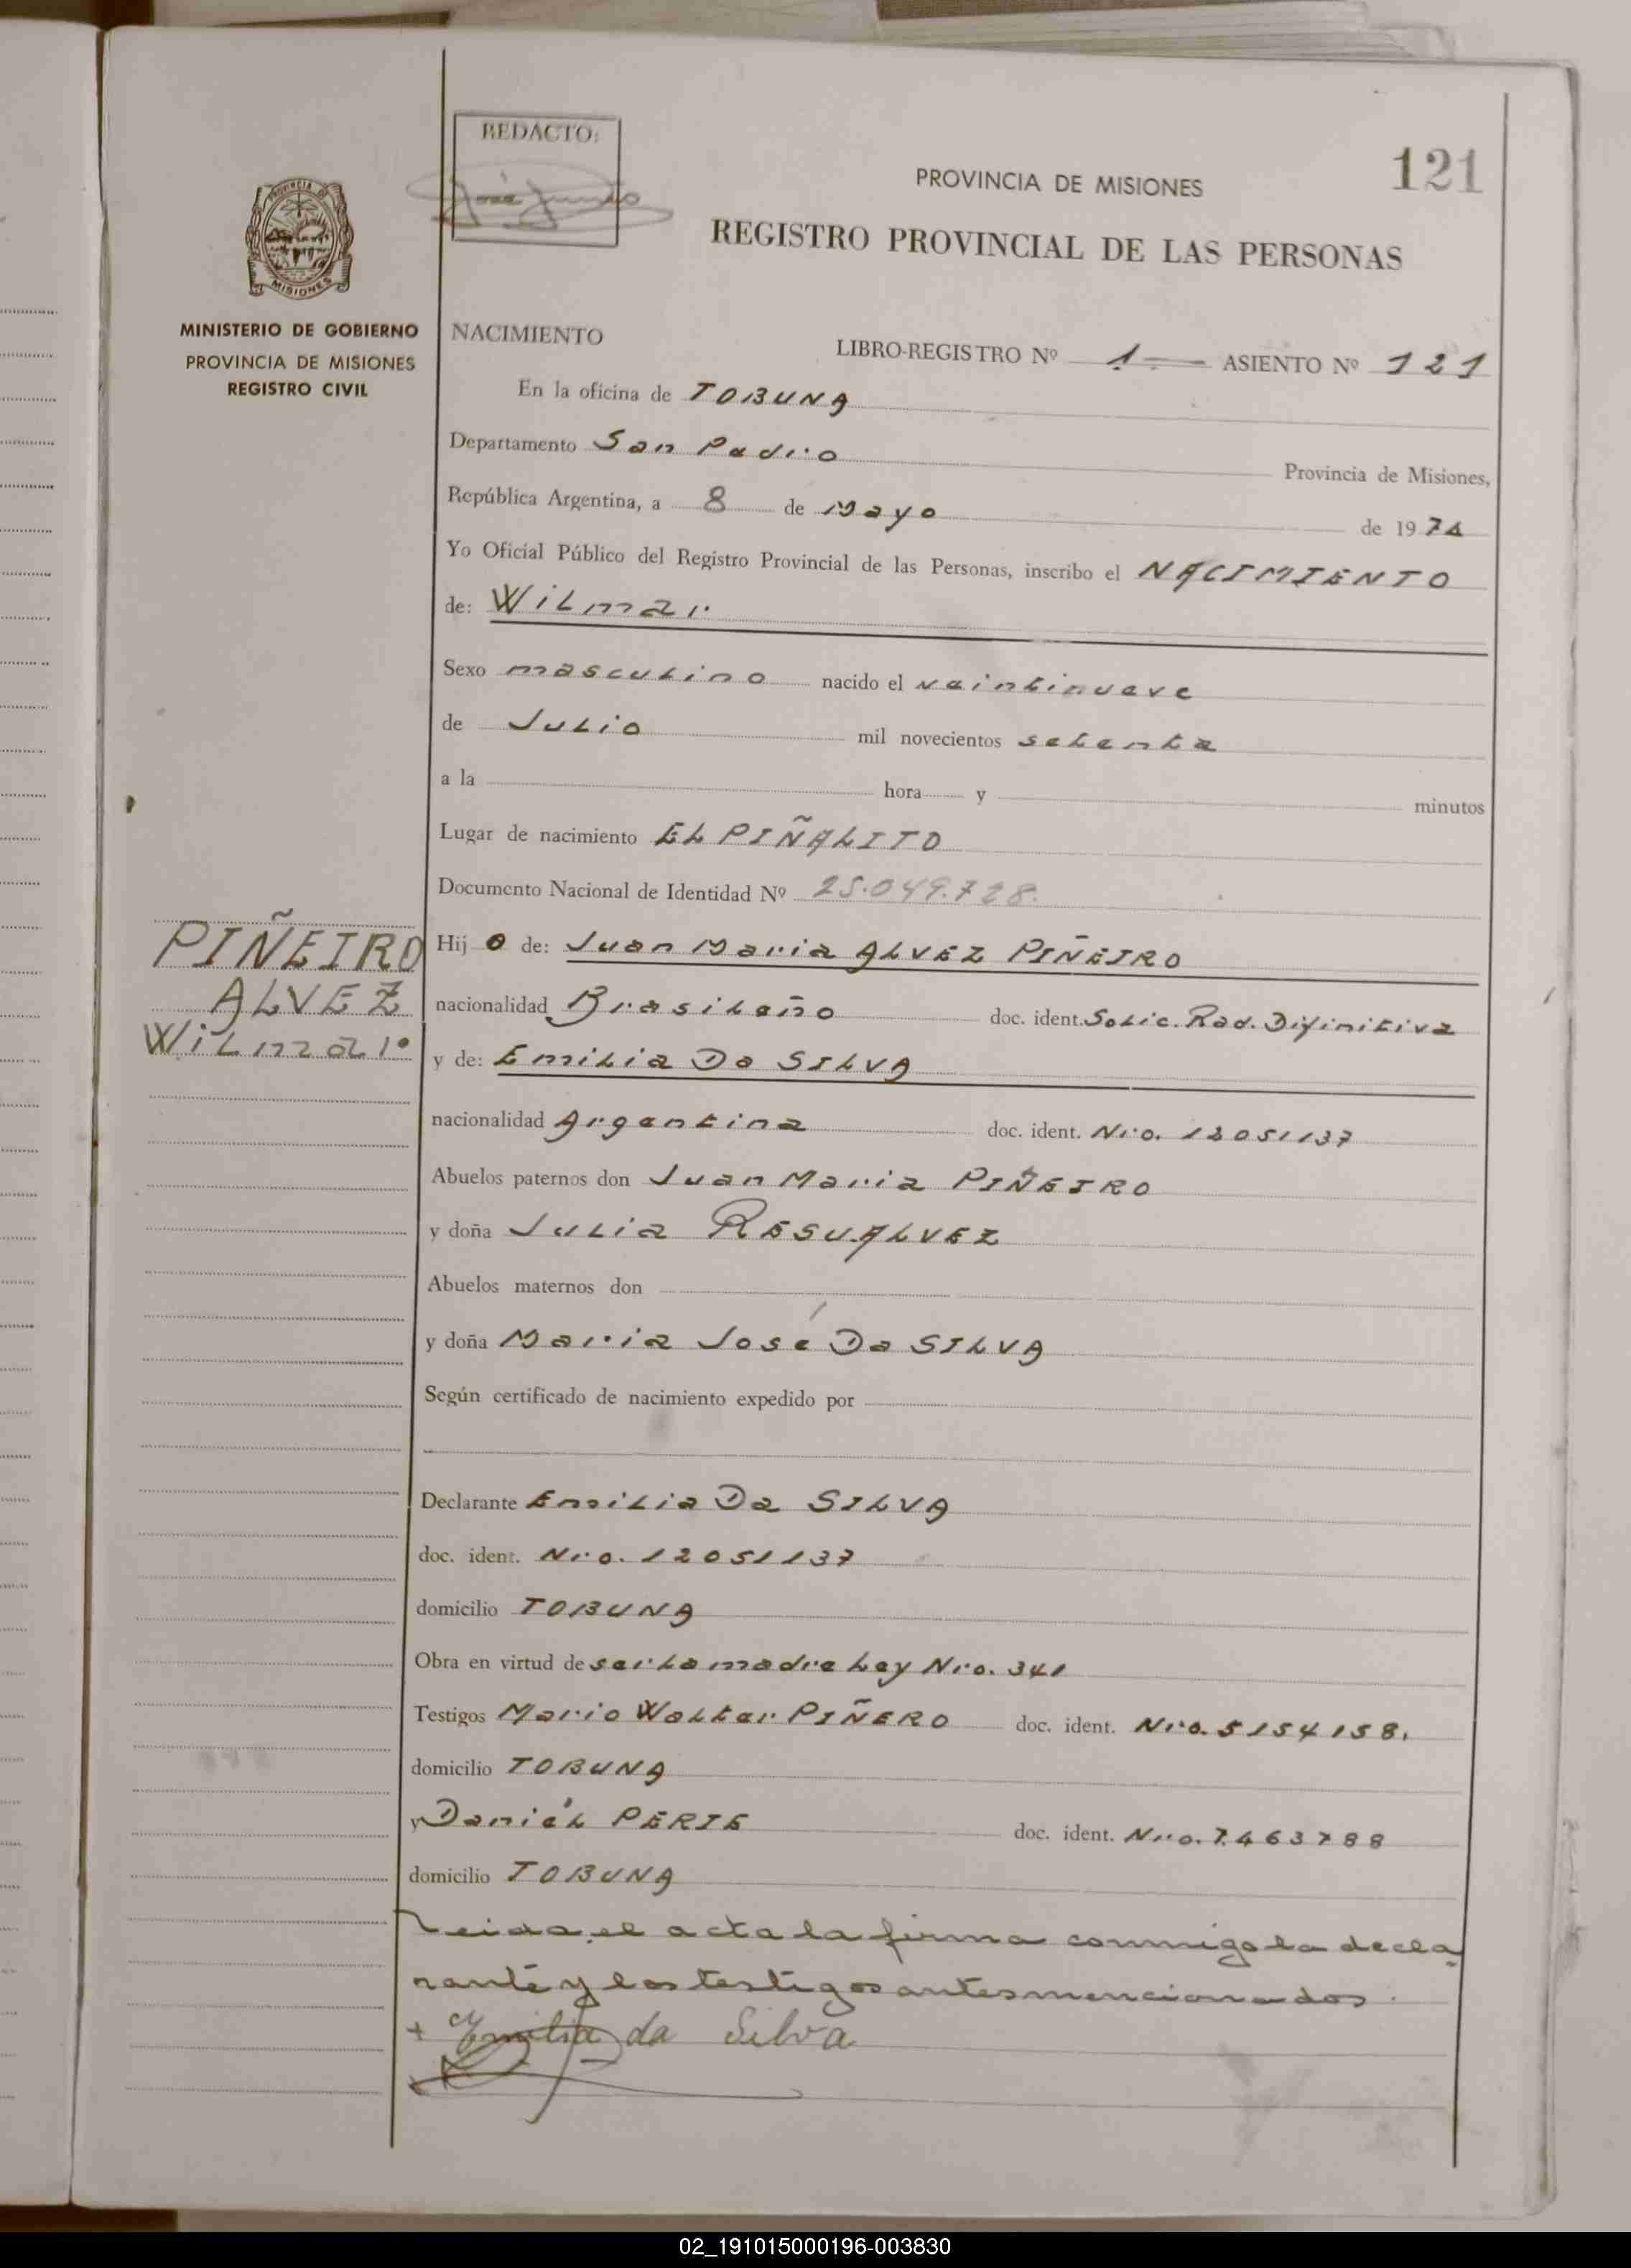 REDACTO:
121
PROVINCIA DE MISIONES
REGISTRO PROVINCIAL DE LAS PERSONAS
PROVINCIA DE
MISIONES
MINISTERIO DE GOBIERNO
PROVINCIA DE MISIONES
REGISTRO CIVIL
NACIMIENTO
LIBRO-REGISTRO Nº 1 ASIENTO Nº 121
En la oficina de TOBUNA
Departamento San Pedro Provincia de Misiones,
República Argentina, a 8 de Mayo de 1974
Yo Oficial Público del Registro Provincial de las Personas, inscribo el NACIMIENTO
de: Wilmar
Sexo masculino nacido el veintinueve
de Julio mil novecientos setenta
a la hora y minutos
Lugar de nacimiento EL PIÑALITO
Documento Nacional de Identidad Nº 25.049.728.
PIÑEIRO
ALVEZ
Wilmar
Hij o de: Juan Maria ALVEZ PIÑEIRO
nacionalidad Brasileño doc. ident. Solic. Rad. Difinitiva
y de: Emilia Da SILVA
nacionalidad Argentina doc. ident. Nro. 12051137
Abuelos paternos don Juan Maria PIÑEIRO
y doña Julia RESUALVEZ
Abuelos maternos don
y doña Maria José Da SILVA
Según certificado de nacimiento expedido por
Declarante Emilia Da SILVA
doc. ident. Nro. 12051137
domicilio TOBUNA
Obra en virtud de ser la madre Ley Nro. 341
Testigos Mario Walter PIÑERO doc. ident. Nro. 5154158.
domicilio TOBUNA
y Daniél PERIE doc. ident. Nro. 7.463788
domicilio TOBUNA
Leida el acta la firma conmigo la decla
rante y los testigos antes mencionados.
+ Emilia da Silva
02_191015000196-003830